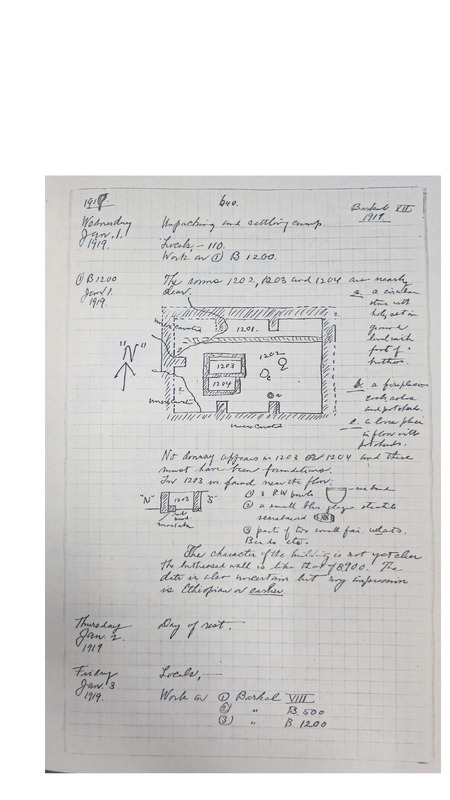 1919
640.
Barkal VII
1919
Wednesday
Jan. 1.
1919.
Unpacking and settling camp.
Locals, - 110.
Work on ① B 1200.
① B 1200
Jan 1.
1919.
The rooms 1202, 1203 and 1204 are nearly
clear.
a. a circular
stone with
hole set in
ground
level with
foot of
b. a fireplace
and potsherds.
c. a loose place
in floor with
potsherds.
unexcavated
1201.
1202
1203
1204
"N"
unexcavated
unexcavated
No doorway appears in 1203 or 1204 and these
must have been foundations.
In 1203 was found near the floor:
① 3 RW bowls
② a small blue glaze steatite
③ parts of two small fai.
Beads etc.
"N" 1203 "S"
The character of the building is not yet clear
the buttressed wall is like that of B 900. The
date is also uncertain but my impression
is Ethiopian or earlier.
Thursday
Jan. 2.
1919
Day of rest.
Friday
Jan. 3
1919.
Locals, —
Work on ① Barkal VIII
② " B 500
③ " B 1200